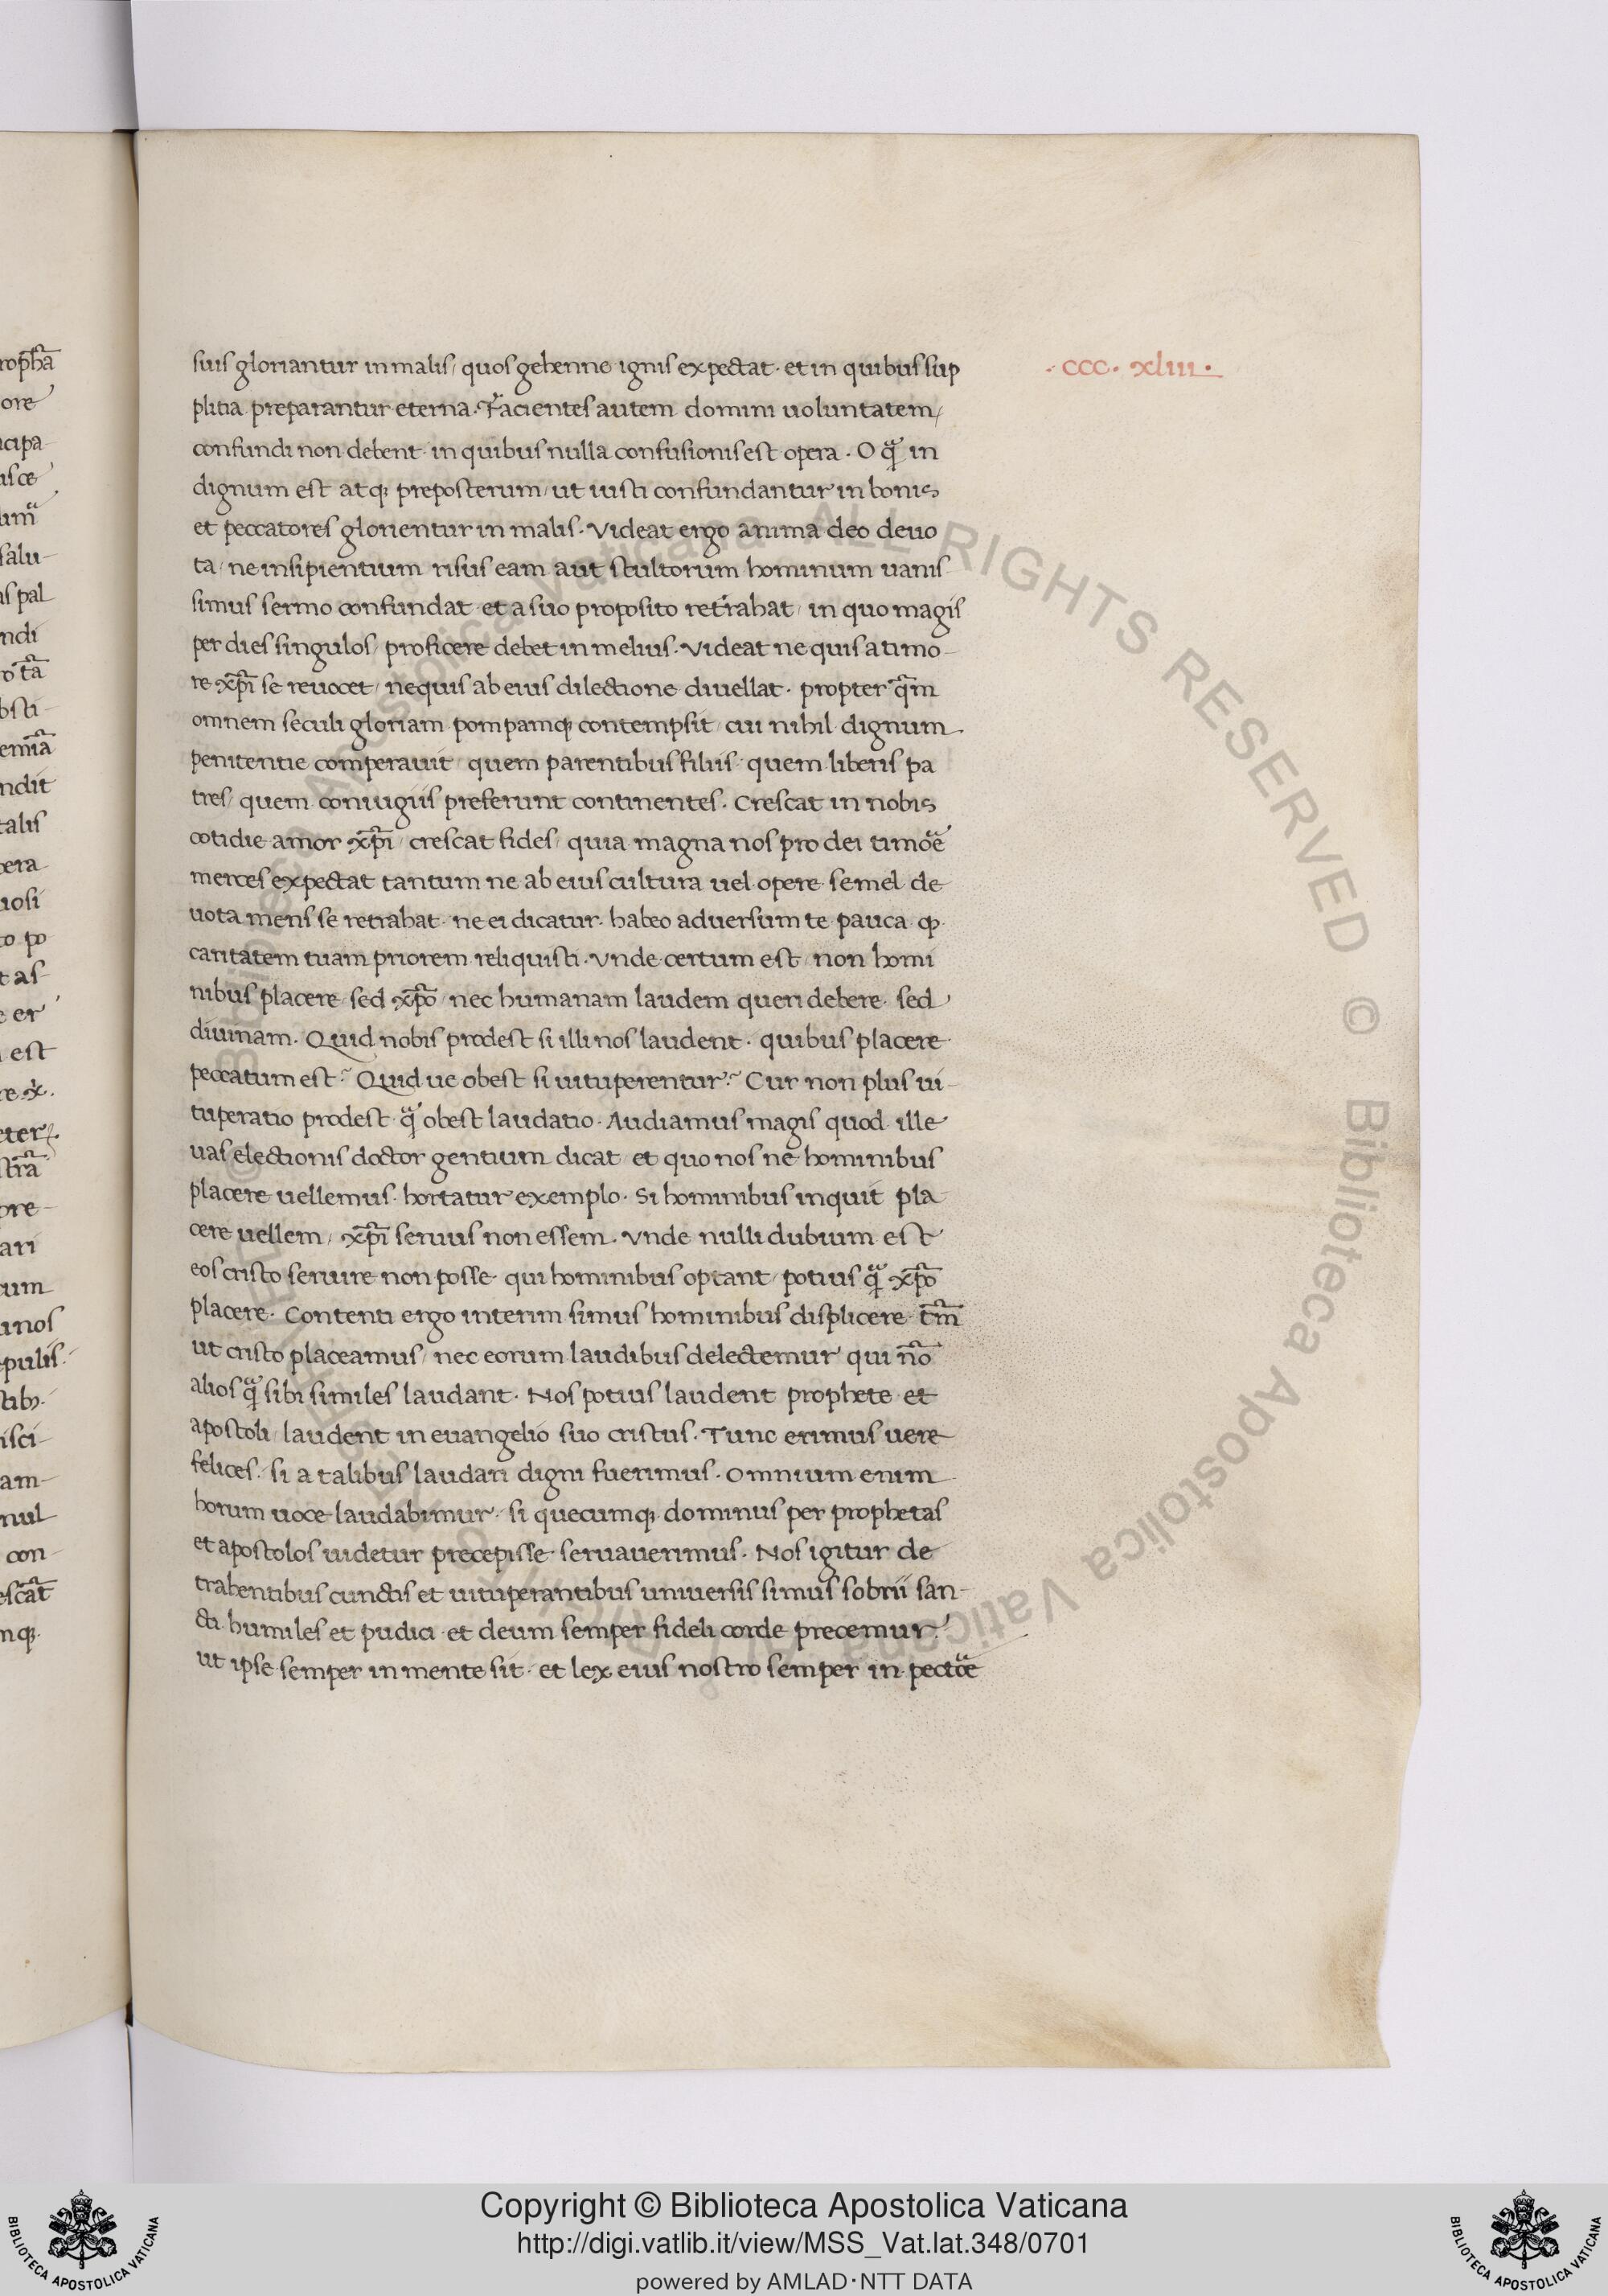 · ccc · xliii ·
suis gloriantur in malis / quos gehenne ignis expectat · et in quibus sup
plitia preparantur eterna · Facientes autem domini uoluntatem /
confundi non debent in quibus nulla confusionis est opera · O qᷓ in
dignum est atqꝫ preposterum / ut iusti confundantur in bonis
et peccatores glorientur in malis · Videat ergo anima deo deuo
ta / ne insipientium risus eam aut stultorum hominum uanis
simus sermo confundat et a suo proposito retrahat / in quo magis
per dies singulos / proficere debet in melius · Videat ne quis a timo-
re xp̄i se reuocet / nequis ab eius dilectione diuellat · propter qᷓm
omnem seculi gloriam pompamqꝫ contempsit / cui nihil dignum
penitentie comperauit / quem parentibus filiis · quem liberis pa
tres / quem coniugiis preferunt continentes · Crescat in nobis
cotidie amor xp̄i / crescat fides / quia magna nos pro dei timoᷓe
merces expectat tantum ne ab eius cultura uel opere semel de
uota mens se retrahat · ne ei dicatur · habeo aduersum te pauca ꝙ
caritatem tuam priorem reliquisti · Vnde certum est / non homi
nibus placere / sed xp̄o / nec humanam laudem queri debere · sed
diuinam · Quid nobis prodest si illi nos laudent · quibus placere
peccatum est? Quid ue obest si uituperentur? Cur non plus ui-
tuperatio prodest qᷓ obest laudatio · Audiamus magis quod ille
uas electionis doctor gentium dicat / et quo nos ne hominibus
placere uellemus · hortatur exemplo · Si hominibus inquit pla
cere uellem / xp̄i seruus non essem · Vnde nulli dubium est
eos cristo seruire non posse · qui hominibus optant / potius qᷓ xp̄o
placere · Contenti ergo interim simus hominibus displicere tm̄
ut cristo placeamus / nec eorum laudibus delectemur qui nō
alios qᷓ sibi similes laudant · Nos potius laudent prophete et
apostoli / laudent in euangelio suo cristus · Tunc erimus uere
felices · si a talibus laudari digni fuerimus · Omnium enim
horum uoce laudabimur · si quecumqꝫ dominus per prophetas
et apostolos uidetur precepisse seruauerimus · Nos igitur de
trahentibus cunctis et uituperantibus uniuersis simus sobrii san-
cti humiles et pudici et deum semper fideli corde precemur
ut ipse semper in mente sit · et lex eius nostro semper in pectoᷓe
© Biblioteca Apostolica Vaticana ALL RIGHTS RESERVED © Biblioteca Apostolica Vaticana ALL RIGHTS RESERVED
BIBLIOTECA APOSTOLICA VATICANA
Copyright © Biblioteca Apostolica Vaticana
http://digi.vatlib.it/view/MSS_Vat.lat.348/0701
powered by AMLAD·NTT DATA
BIBLIOTECA APOSTOLICA VATICANA